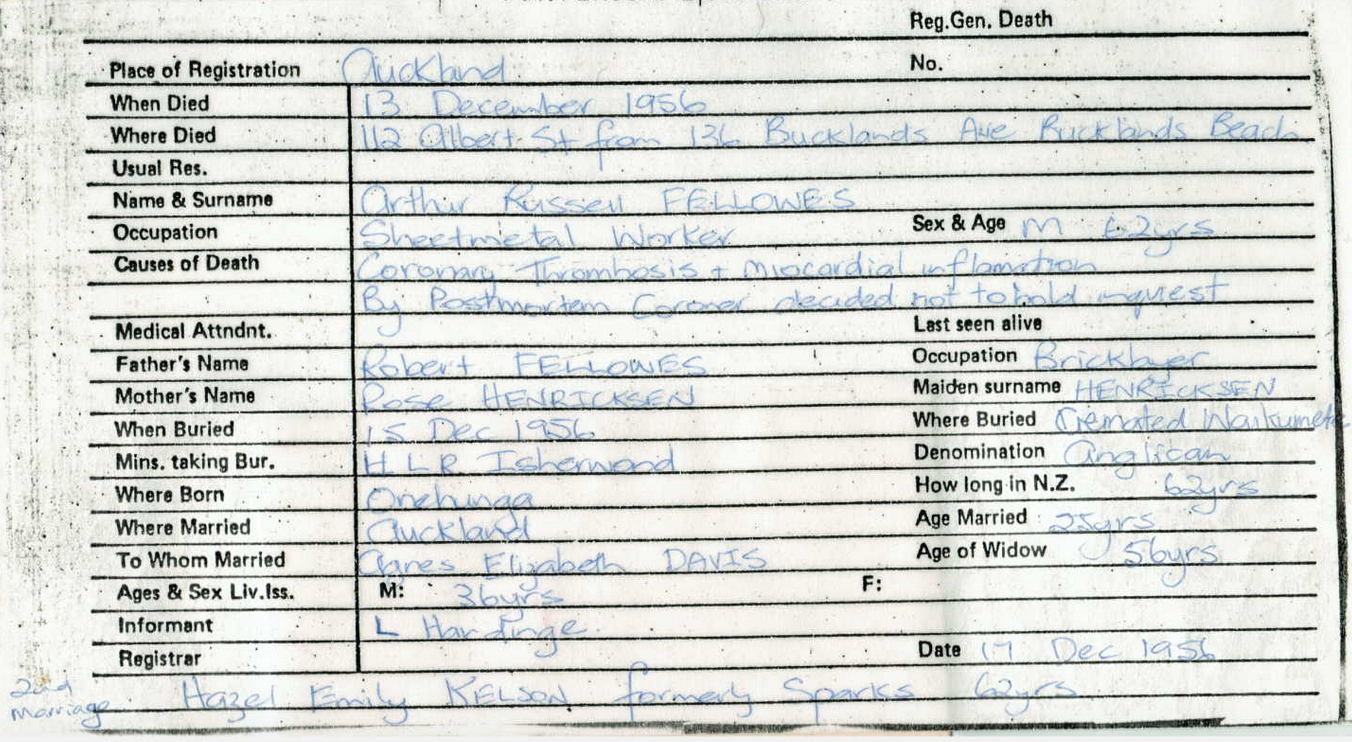 Reg.Gen. Death
Place of Registration Auckland No.
When Died 13 December 1956
Where Died 112 Albert St from 136 Bucklands Ave Bucklands Beach
Usual Res.
Name & Surname Arthur Russell FELLOWES
Occupation Sheetmetal Worker Sex & Age M 62yrs
Causes of Death Coronary Thrombosis + Miocardial inflamation
By Postmortem Coroner decided not to hold inquest
Medical Attndnt. Last seen alive
Father's Name Robert FELLOWES Occupation Bricklayer
Mother's Name Rose HENRICKSEN Maiden surname HENRICKSEN
When Buried 15 Dec 1956 Where Buried Cremated Waikumete
Mins. taking Bur. H L R Isherwood Denomination Anglican
Where Born Onehunga How long in N.Z. 62yrs
Where Married Auckland Age Married 25yrs
To Whom Married Agnes Elizabeth DAVIS Age of Widow 56yrs
Ages & Sex Liv.Iss. M: 36yrs F:
Informant L Hardinge.
Registrar Date 17 Dec 1956
2nd marriage Hazel Emily KELSON formerly Sparks 62yrs